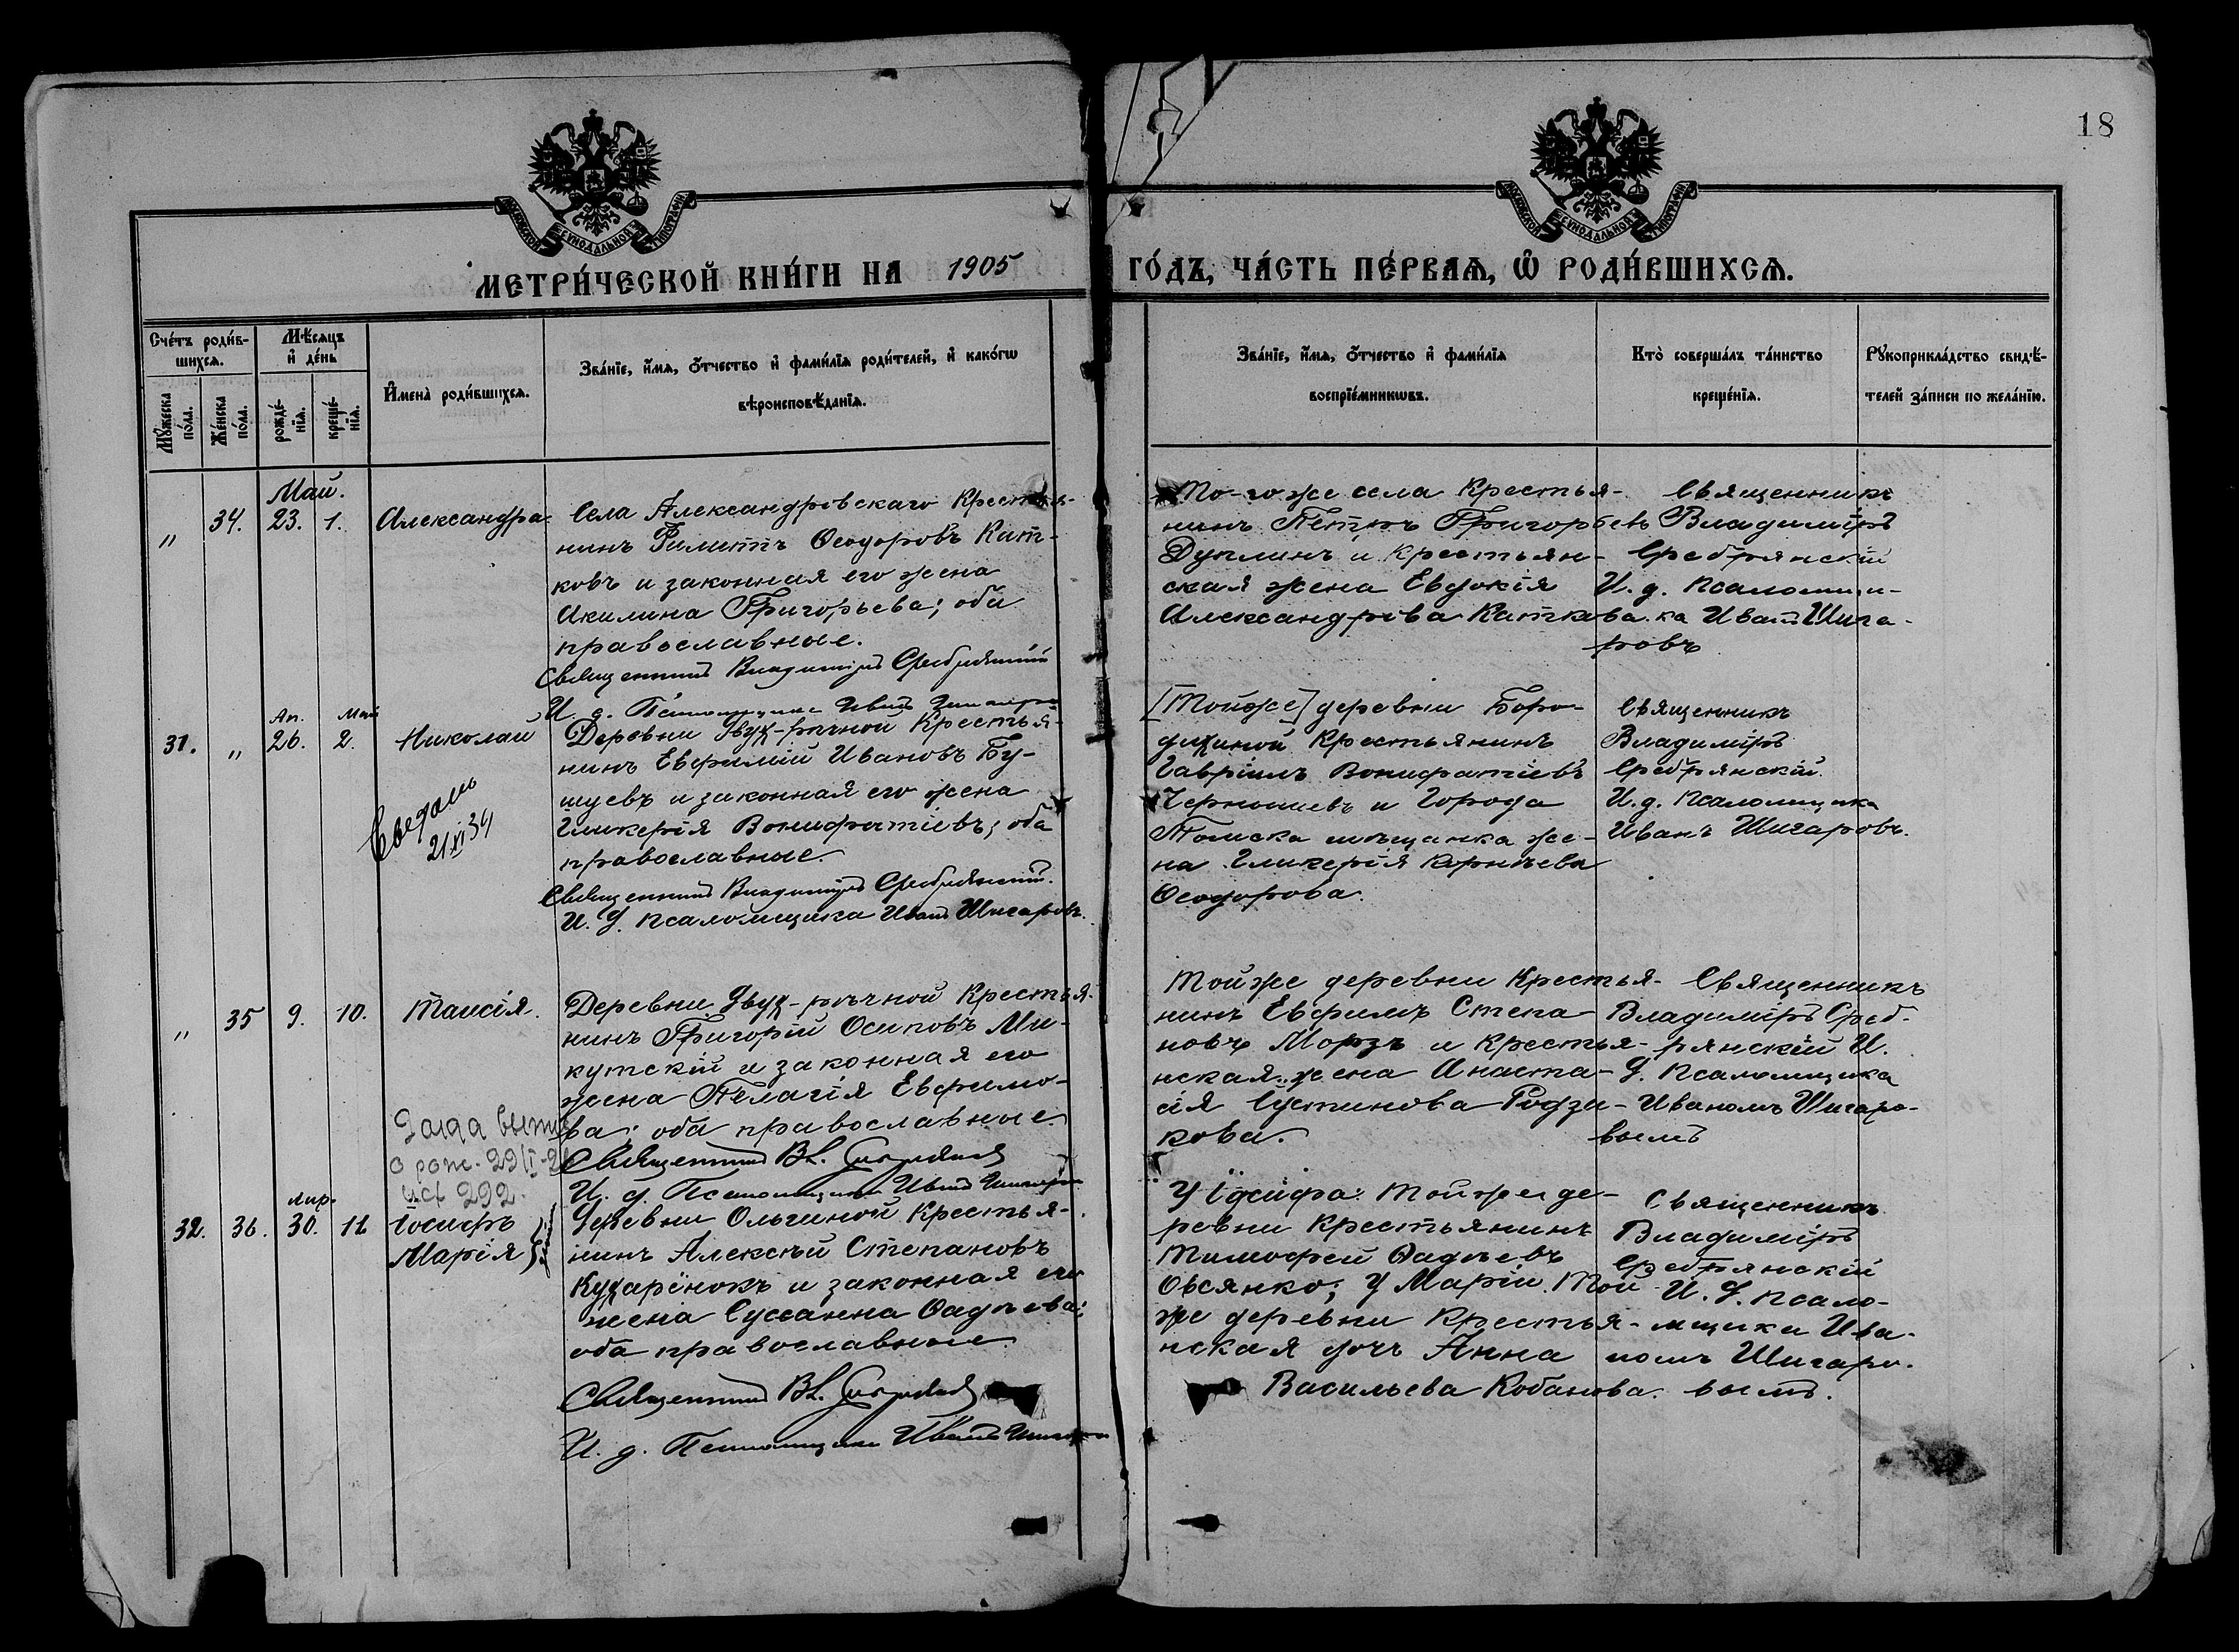 18
МОСКОВСКОЙ СѴНОДАЛЬНОЙ ТИПОГРАФІИ
МОСКОВСКОЙ СѴНОДАЛЬНОЙ ТИПОГРАФІИ
МЕТРИ́ЧЕСКОЙ КНИ́ГИ НА 1905 ГО́ДЪ, ЧА́СТЬ ПЕ́РВАѦ, Ѽ РОДИ́ВШИХСѦ.
Сче́тъ роди́в-
шихсѧ.
Мꙋ́жеска по́ла.
Же́нска по́ла.
Мѣ́сѧцъ
и҆ де́нь
рожде́-
нїѧ.
креще́-
нїѧ.
И҆мена̀ роди́вшихсѧ.
Зва́нїе, и҆́мѧ, ѻ҆́тчество и҆ фами́лїѧ роди́телей, и҆ како́гѡ
вѣроисповѣ́данїѧ.
Зва́нїе, и҆́мѧ, ѻ҆́тчество и҆ фами́лїѧ
воспрїе́мникѡвъ.
Кто̀ соверша́лъ та́инство
креще́нїѧ.
Рꙋкоприкла́дство свидѣ́-
телей за́писи по жела́нїю.
Май.
" 34. 23. 1. Александра
Села Александровскаго Крестья-
нинъ Филиппъ Ѳеодоровъ Кит-
ковъ и законная его жена
Акилина Григорьева; оба
православные.
Священникъ Владиміръ Сребрянскій
И. д. Псаломщика Иванъ Шигаровъ
То-го же села Крестья-
нинъ Петръ Григорьевъ
Дуплинъ и крестьян-
ская жена Евдокія
Александрова Киткова.
Священникъ
Владиміръ
Сребрянскій
И. д. псаломщи-
ка Иванъ Шига-
ровъ
Ап. Май
31. " 26. 2. Николай
Свѣдѣнь
21 XI 34
Деревни Двух-рѣчной Крестья-
нинъ Евфимій Ивановъ Бу-
шуевъ и законная его жена
Гликерія Вонифатіевъ; оба
православные.
Священникъ Владиміръ Сребрянскій.
И. Д. псаломщика Иванъ Шигаровъ.
[Тойже] деревни Боро-
дихиной Крестьянинъ
Гавріилъ Вонифатіевъ
Чернышевъ и Города
Томска мѣщанка же-
на Гликерія Корнѣева
Ѳеодорова.
Священникъ
Владиміръ
Сребрянскій.
И. д. псаломщика
Иванъ Шигаровъ.
" 35 9. 10. Таисія.
Деревни Двух-рѣчной Крестья-
нинъ Григорій Осиповъ Ми-
кутскій и законная его
жена Пелагія Евфимо-
ва; оба православные.
Священникъ Вл. Сребрянскій
И. д. Псаломщика Иванъ Шигаровъ
Тойже деревни Крестья-
нинъ Евфимъ Степа-
новъ Морзъ и крестья-
нская жена Анаста-
сія Іустинова Родзи-
кова.
Священникъ
Владиміръ Среб-
рянскій И.
Д. псаломщика
Иваномъ Шигаро-
вымъ
292.
Апр.
32. 36. 30. 11 Іосифъ
Марія }
Деревни Ольгиной Крестья-
нинъ Алексѣй Степановъ
Кухарёнокъ и законная его
жена Сусанна Ѳадѣева;
оба православные.
Священникъ Вл. Сребрянскій
И. д. Псаломщика Иванъ Шигаровъ
У Іосифа: Той же де-
ревни Крестьянинъ
Тимофей Ѳадѣевъ
Овсянко; У Маріи. Той
же деревни Крестья-
нская дочь Анна
Васильева Кобанова.
Священникъ
Владиміръ
Сребрянскій
И. Д. псало-
мщика Ива-
номъ Шигаро-
вымъ.